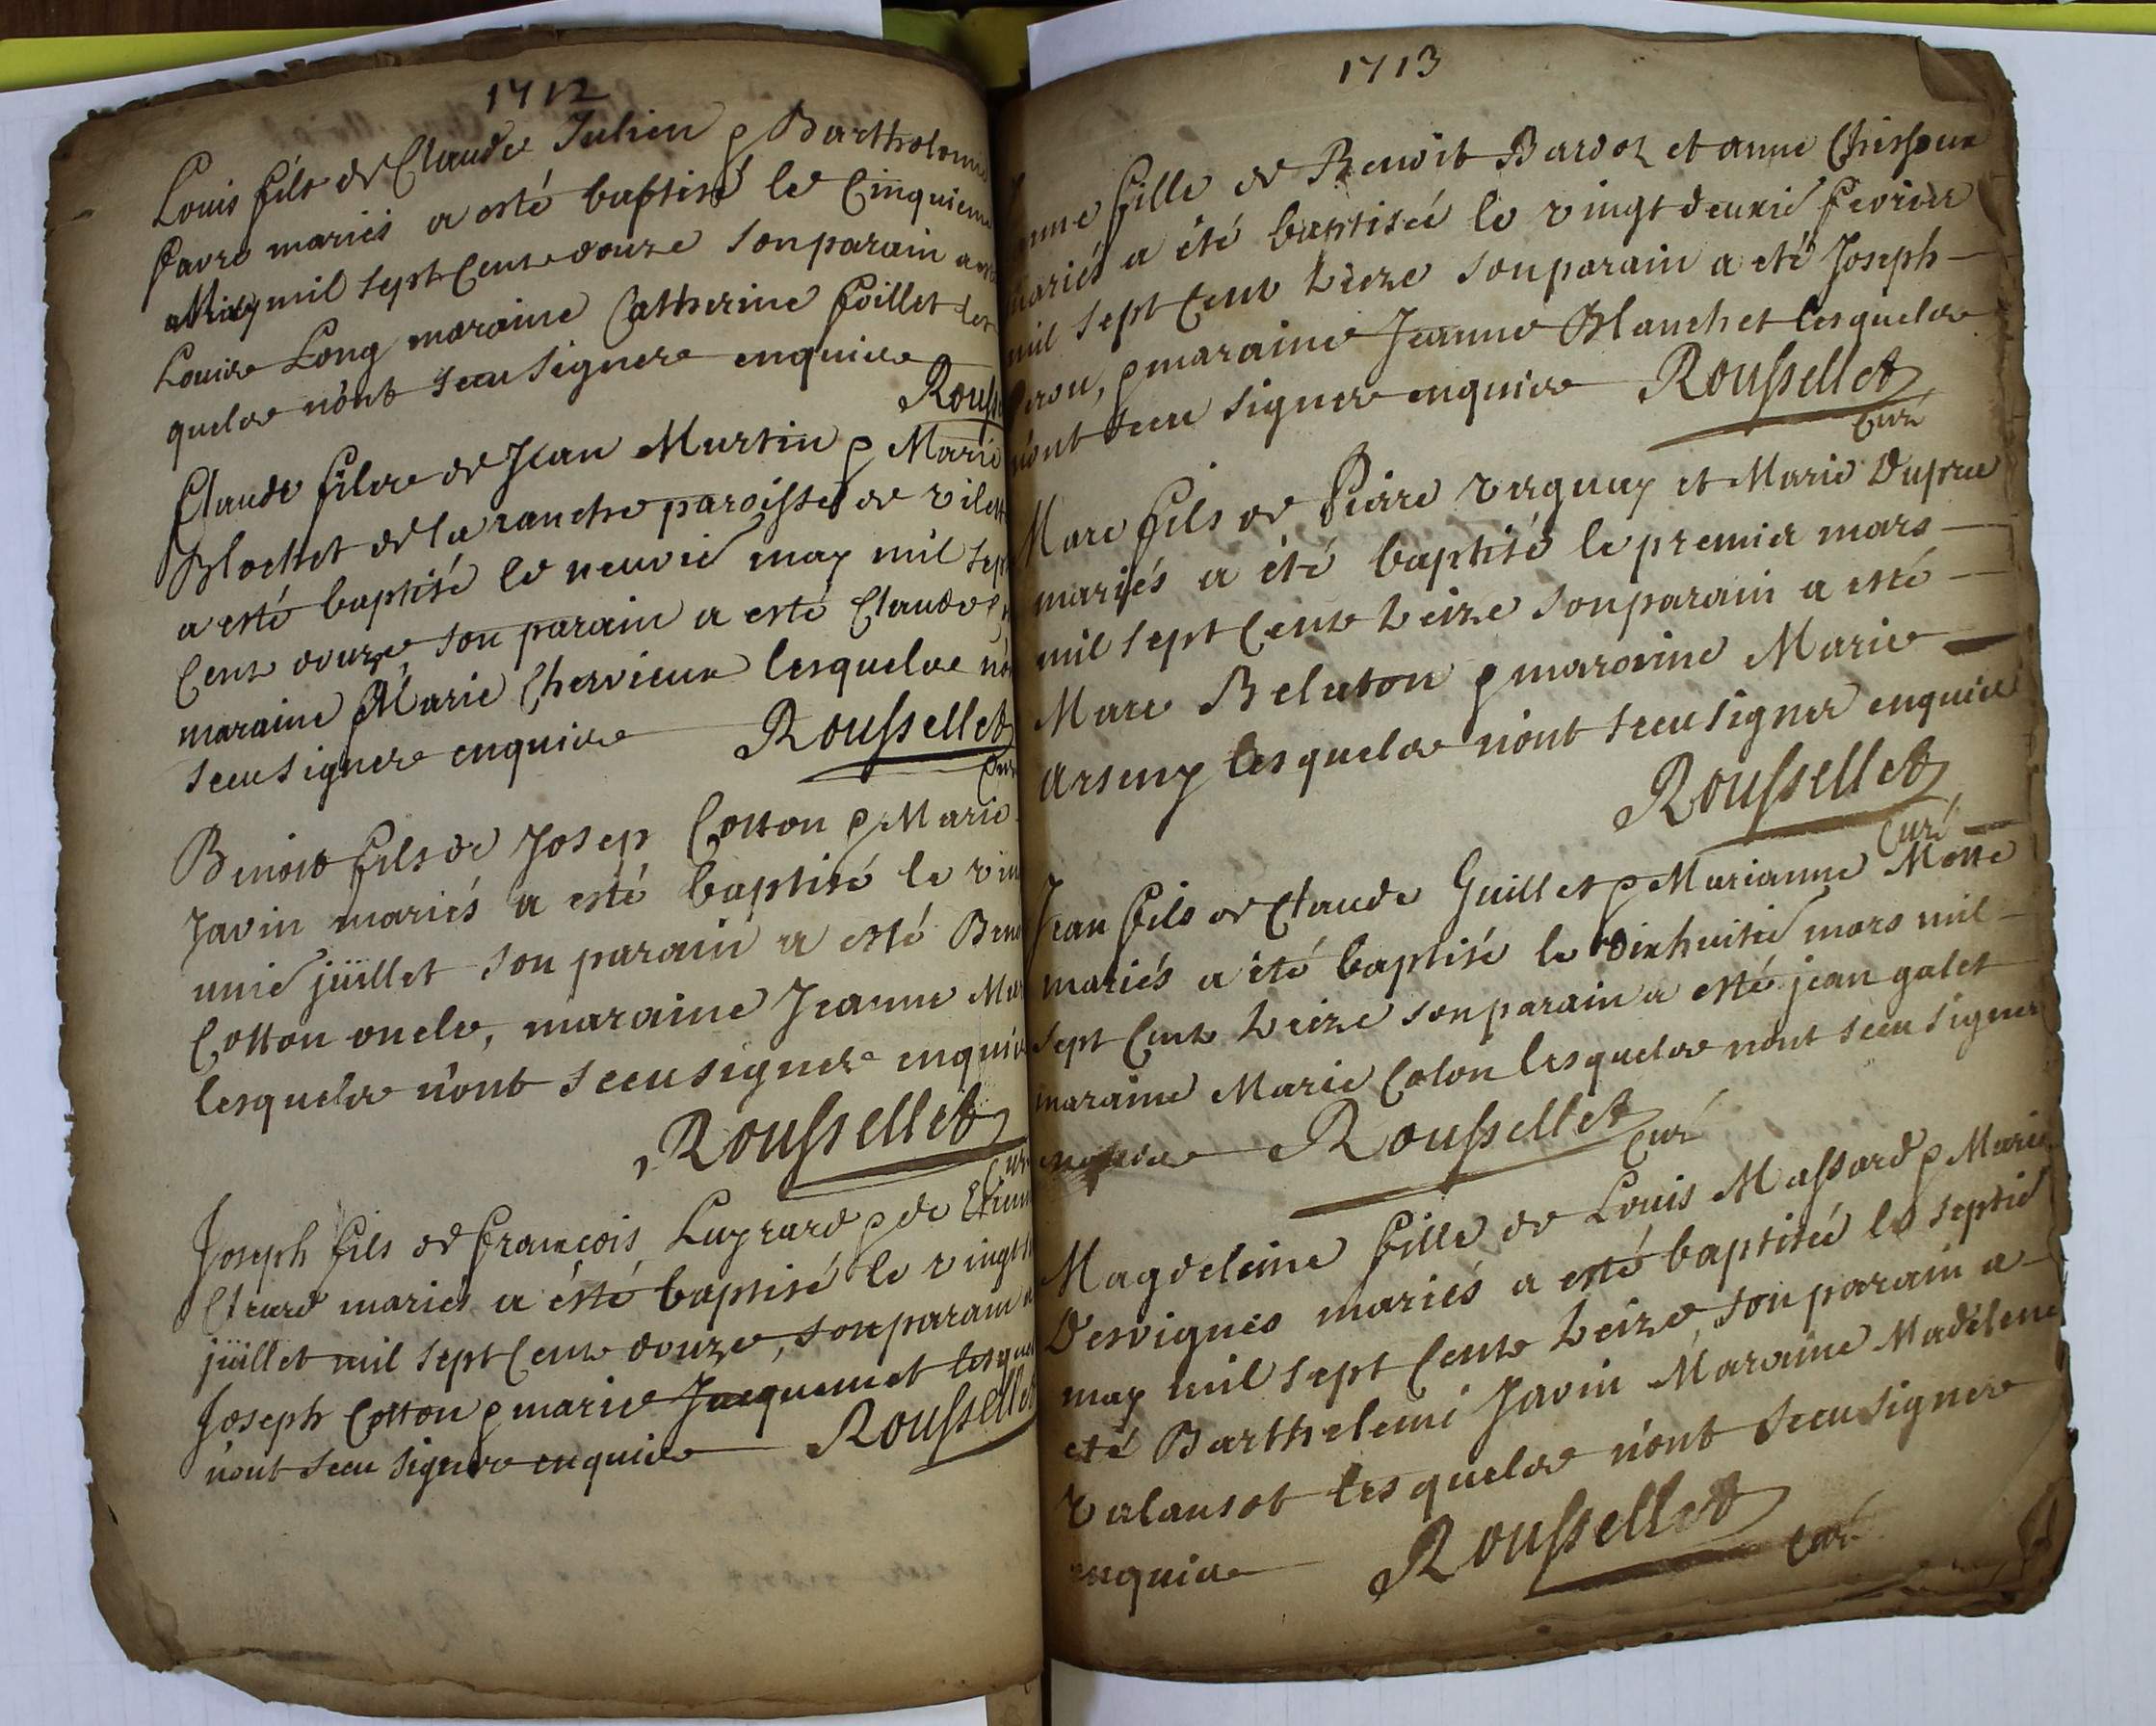 1712
Louis fils de Claude Julien & Bartholomee
favre mariés a esté baptisé le Cinquieme
may mil sept Cent douze son parain a esté
Louis Long maraine Catherine foillet les
quels n'ont sceu signer enquis
Rouss
Claude fils de Jean Murtin & Marie
Blochet de la ranche paroisse de
a esté baptisé le neuvié may mil sept
Cent douze, son parain a esté Claude
maraine Marie Chervieux lesquels n'on
sceu signer enquis Roussellet
Curé
Benoit fils de Josep Cotton & Marie
Javin mariés a esté baptisé le vin
unié juillet son parain a esté Beno
Cotton oncle, maraine Jeanne Mar
lesquels n'ont sceu signer enquis
Roussellet
Curé
Joseph fils de françois Luyrard & de Etienn
Etrard mariés a ésté baptisé le vingt
juillet mil sept Cent douze, son parain a
Joseph Cotton & marie Jacquemet lesquel
n'ont sceu signer enquis Roussellet
1713
anne fille de Benoit Bardoz et anne
mariés a été baptisée le vingt deuxié fevrier
mil sept Cent treize son parain a eté Joseph
, & maraine Jeanne Blanchet lesquels
n'ont sceu signer enquis Roussellet
Curé
Marc fils de Pierre verguay et Marie Dupras
mariés a été baptisé le premier mars
mil sept Cent treize son parain a esté
Marc Beluton & maraine Marie
arseny lesquels n'ont sceu signer enquis
Roussellet
Curé
Jean fils de Claude Guillet & Marianne Motte
mariés a été baptisé le dixhuitié mars mil
sept Cent treize son parain a esté jean galet
maraine Marie Colon lesquels n'ont sceu signer
enquis Roussellet Curé
Magdeleine fille de Louis Massard & Marie
Desvignes mariés a esté baptisée le septié
may mil sept Cent treize, son parain a
eté Barthelemi Javin Maraine Madelene
valansot lesquels n'ont sceu signer
enquis Roussellet Curé